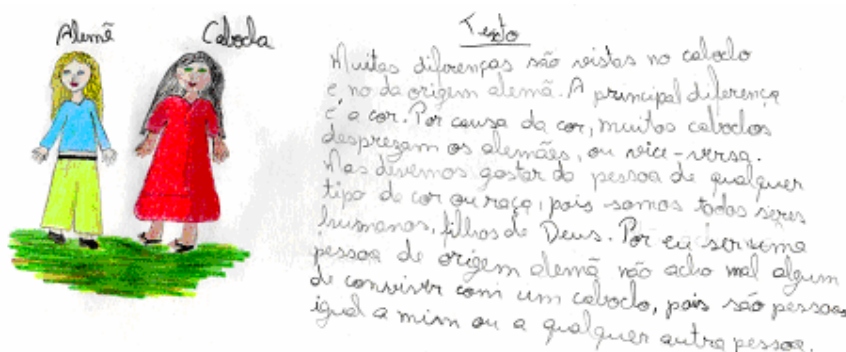 Alemã
Cabocla
Texto
Muitas diferenças são vistas no caboclo
e no da origem alemã. A principal diferença
é a cor. Por causa da cor, muitos caboclos
desprezam os alemães, ou vice-versa.
Mas devemos gostar da pessoa de qualquer
tipo de cor ou raça, pois somos todos seres
humanos, filhos de Deus. Por eu ser uma
pessoa de origem alemã não acho mal algum
de conviver com um caboclo, pois são pessoas
igual a mim ou a qualquer outra pessoa.